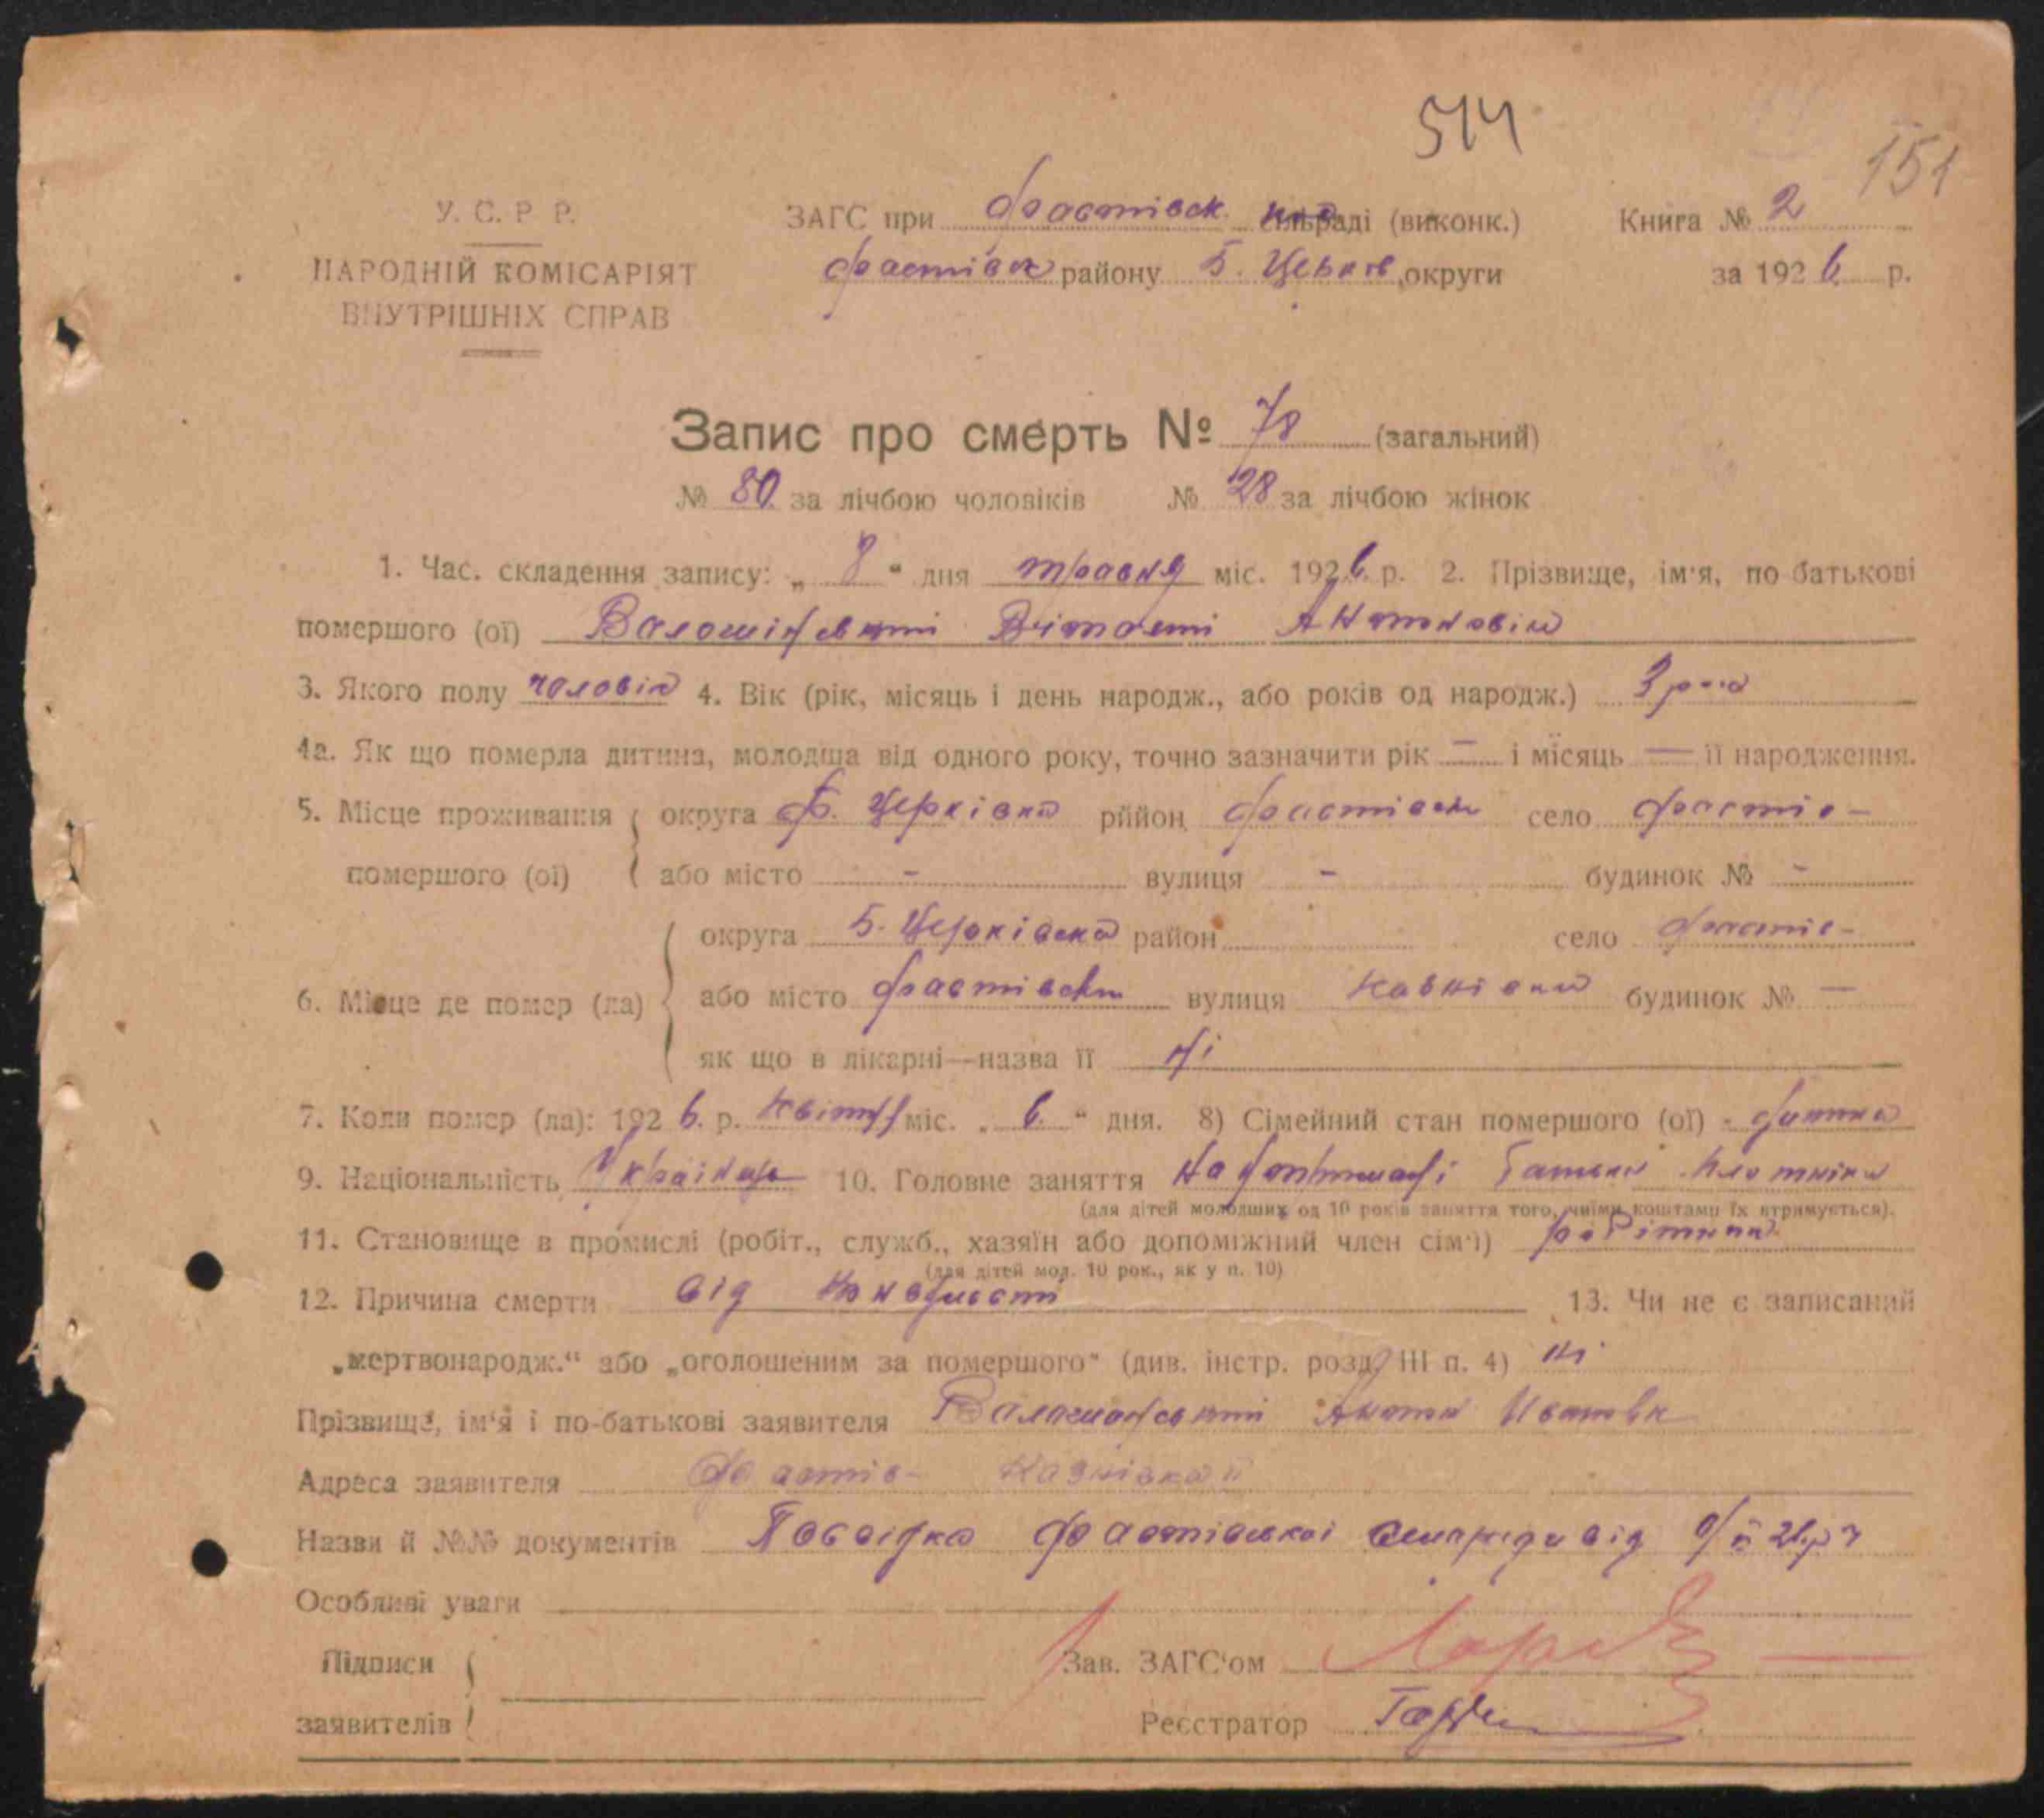 514
151
У. С. Р. Р.
НАРОДНІЙ КОМІСАРІЯТ
ВНУТРІШНІХ СПРАВ
ЗАГС при Фастівськ. сільраді (виконк.)
Фастівськ району Б. Церків. округи
Книга № 2
за 1926 р.
Запис про смерть № 78 (загальний)
№ 80 за лічбою чоловіків № 28 за лічбою жінок
1. Час. складення запису: „ 8 “ дня травня міс. 1926 р. 2. Прізвище, ім'я, по батькові
помершого (ої) Валошінський Антонович
3. Якого полу чоловік 4. Вік (рік, місяць і день народж., або років од народж.) 3 рок
4а. Як що померла дитина, молодша від одного року, точно зазначити рік — і місяць — її народження.
5. Місце проживання округа Б. Церківка район Фастівськ село Фастів -
помершого (ої) або місто - вулиця - будинок № -
6. Місце де помер (ла) округа Б. Церківська район село Фастів -
або місто Фастівськ вулиця будинок № —
як що в лікарні—назва її ні
7. Коли помер (ла): 1926. р. квітня міс. „ 6. “ дня. 8) Сімейний стан помершого (ої) - дитина
9. Національність Українець 10. Головне заняття На батька
(для дітей молодших од 10 років заняття того, чиїми коштами їх втримується).
11. Становище в промислі (робіт., служб., хазяїн або допоміжний член сім'ї) робітник
(для дітей мол. 10 рок., як у п. 10)
12. Причина смерти від 13. Чи не є записаний
„мертвонародж.“ або „оголошеним за помершого“ (див. інстр. розд. III п. 4) ні
Прізвище, ім'я і по-батькові заявителя Валошинський Антон
Адреса заявителя Фастів -
Назви й №№ документів Посвідка Фастівської від
Особливі уваги
Підписи
заявителів
Зав. ЗАГС'ом
Реєстратор